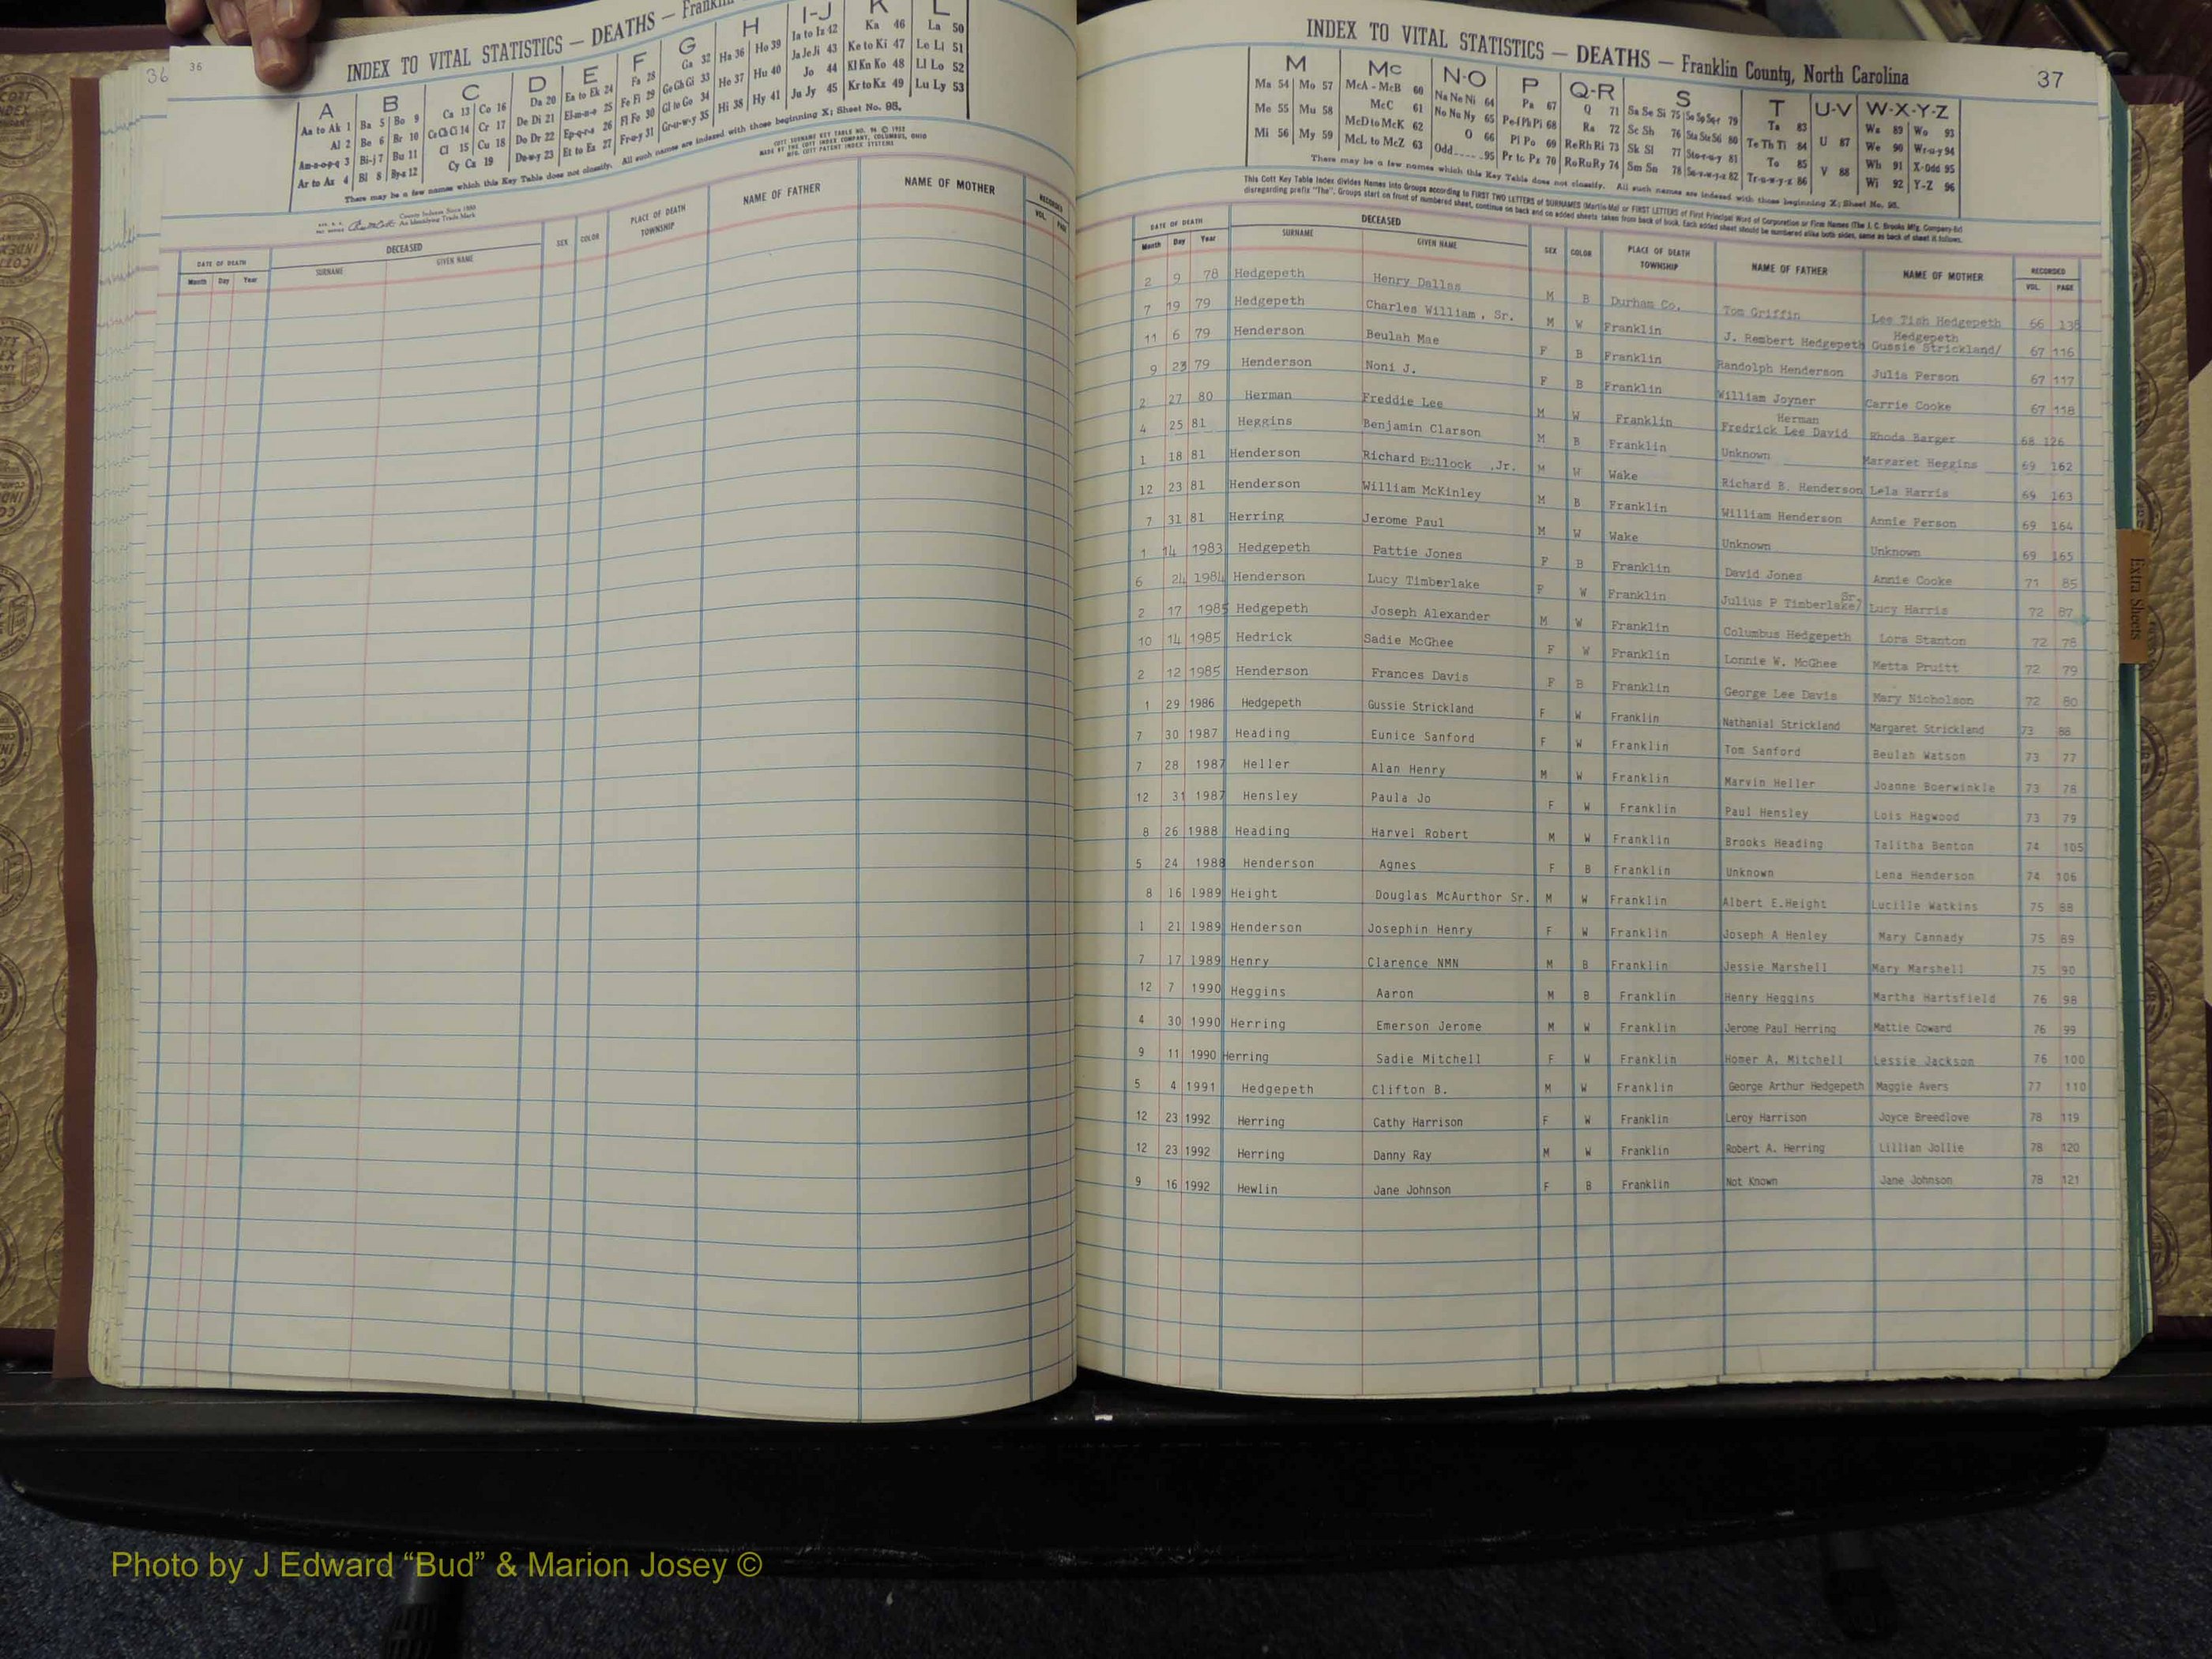 36 36
INDEX TO VITAL STATISTICS — DEATHS —
A B C D E F G H I-J K L
Aa to Ak 1 Ba 5 Bo 9 Ca 13 Co 16 Da 20 Ea to Ek 24 Fa 28 Ga 32 Ha 36 Ho 39 Ia to Iz 42 Ka 46 La 50
Al 2 Be 6 Br 10 Ce Ch Ci 14 Cr 17 De Di 21 El-m-n-o 25 Fe Fi 29 Ge Gh Gi 33 He 37 Hu 40 Ja Je Ji 43 Ke to Ki 47 Le Li 51
Am-n-o-p-q 3 Bi-j 7 Bu 11 Cl 15 Cu 18 Do Dr 22 Ep-q-r-s 26 Fl Fo 30 Gl to Go 34 Hi 38 Hy 41 Jo 44 Kl Kn Ko 48 Ll Lo 52
Ar to Az 4 Bl 8 By-z 12 Cy Cz 19 Du-w-y 23 Et to Ez 27 Fr-u-y 31 Gr-u-w-y 35 Ju Jy 45 Kr to Kz 49 Lu Ly 53
There may be a few names which this Key Table does not classify. All such names are indexed with those beginning X; Sheet No. 98.
COTT SURNAME KEY TABLE NO.
MADE BY THE COTT INDEX COMPANY, COLUMBUS, OHIO
MFG. COTT PATENT INDEX SYSTEMS
County Indexes Since 1888
An Identifying Trade Mark
DATE OF DEATH DECEASED SEX COLOR PLACE OF DEATH TOWNSHIP NAME OF FATHER NAME OF MOTHER RECORDED
Month Day Year SURNAME GIVEN NAME VOL. PAGE
INDEX TO VITAL STATISTICS — DEATHS — Franklin County, North Carolina 37
M Mc N-O P Q-R S T U-V W-X-Y-Z
Ma 54 Mo 57 McA - McB 60 Na Ne Ni 64 Pa 67 Q 71 Sa Se Si 75 79 Ta 83 U 87 Wa 89 Wo 93
Me 55 Mu 58 McC 61 No Nu Ny 65 Pe-f Ph Pi 68 Ra 72 Sc Sh 76 Sta Ste Sti 80 Te Th Ti 84 V 88 We 90 Wr-u-y 94
Mi 56 My 59 McD to McK 62 O 66 Pl Po 69 Re Rh Ri 73 Sk Sl 77 Sto-r-u-y 81 To 85 Wh 91 X-Odd 95
McL to McZ 63 Odd 95 Pr to Pz 70 Ro Ru Ry 74 Sm Sn 78 Su-v-w-y-z 82 Tr-u-w-y-z 86 Wi 92 Y-Z 96
There may be a few names which this Key Table does not classify. All such names are indexed with those beginning X; Sheet No. 98.
This Cott Key Table Index divides Names into Groups according to FIRST TWO LETTERS of SURNAMES (Martin-Ma) or FIRST LETTERS of First Principal Word of Corporation or Firm Names (The J. C. Brooks Mfg. Company-Br)
disregarding prefix "The". Groups start on front of numbered sheet, continue on back and on added sheets taken from back of book. Each added sheet should be numbered alike both sides, same as back of sheet it follows.
DATE OF DEATH DECEASED SEX COLOR PLACE OF DEATH TOWNSHIP NAME OF FATHER NAME OF MOTHER RECORDED
Month Day Year SURNAME GIVEN NAME VOL. PAGE
2 9 78 Hedgepeth Henry Dallas M B Durham Co. Tom Griffin Lee Tish Hedgepeth 66 138
7 19 79 Hedgepeth Charles William, Sr. M W Franklin J. Rembert Hedgepeth Gussie Strickland/ Hedgepeth 67 116
11 6 79 Henderson Beulah Mae F B Franklin Randolph Henderson Julia Person 67 117
9 23 79 Henderson Noni J. F B Franklin William Joyner Carrie Cooke 67 118
2 27 80 Herman Freddie Lee M W Franklin Fredrick Lee David Herman Rhoda Barger 68 126
4 25 81 Heggins Benjamin Clarson M B Franklin Unknown Margaret Heggins 69 162
1 18 81 Henderson Richard Bullock ,Jr. M W Wake Richard B. Henderson Lela Harris 69 163
12 23 81 Henderson William McKinley M B Franklin William Henderson Annie Person 69 164
7 31 81 Herring Jerome Paul M W Wake Unknown Unknown 69 165
1 14 1983 Hedgepeth Pattie Jones F B Franklin David Jones Annie Cooke 71 85
6 24 1984 Henderson Lucy Timberlake F W Franklin Julius P Timberlake/ Sr. Lucy Harris 72 87
2 17 1985 Hedgepeth Joseph Alexander M W Franklin Columbus Hedgepeth Lora Stanton 72 78
10 14 1985 Hedrick Sadie McGhee F W Franklin Lonnie W. McGhee Metta Pruitt 72 79
2 12 1985 Henderson Frances Davis F B Franklin George Lee Davis Mary Nicholson 72 80
1 29 1986 Hedgepeth Gussie Strickland F W Franklin Nathanial Strickland Margaret Strickland 73 88
7 30 1987 Heading Eunice Sanford F W Franklin Tom Sanford Beulah Watson 73 77
7 28 1987 Heller Alan Henry M W Franklin Marvin Heller Joanne Boerwinkle 73 78
12 31 1987 Hensley Paula Jo F W Franklin Paul Hensley Lois Hagwood 73 79
8 26 1988 Heading Harvel Robert M W Franklin Brooks Heading Talitha Benton 74 105
5 24 1988 Henderson Agnes F B Franklin Unknown Lena Henderson 74 106
8 16 1989 Height Douglas McAurthor Sr. M W Franklin Albert E.Height Lucille Watkins 75 88
1 21 1989 Henderson Josephin Henry F W Franklin Joseph A Henley Mary Cannady 75 89
7 17 1989 Henry Clarence NMN M B Franklin Jessie Marshell Mary Marshell 75 90
12 7 1990 Heggins Aaron M B Franklin Henry Heggins Martha Hartsfield 76 98
4 30 1990 Herring Emerson Jerome M W Franklin Jerome Paul Herring Mattie Coward 76 99
9 11 1990 Herring Sadie Mitchell F W Franklin Homer A. Mitchell Lessie Jackson 76 100
5 4 1991 Hedgepeth Clifton B. M W Franklin George Arthur Hedgepeth Maggie Avers 77 110
12 23 1992 Herring Cathy Harrison F W Franklin Leroy Harrison Joyce Breedlove 78 119
12 23 1992 Herring Danny Ray M W Franklin Robert A. Herring Lillian Jollie 78 120
9 16 1992 Hewlin Jane Johnson F B Franklin Not Known Jane Johnson 78 121
Extra Sheets
Photo by J Edward “Bud” & Marion Josey ©